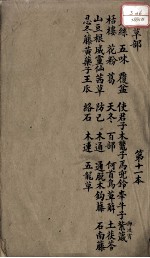 草部
絲 五味 覆盆 使君子 木鱉子 馬兜鈴 牽牛子 紫葳
栝樓 花粉 葛 天冬 百部 何首烏 萆薢 土茯苓
山豆根 威靈仙 茜草 防己 木通 通脱木 鉤藤
忍冬藤 黄藥子 王瓜 絡石 木蓮 五龍草 石南藤
第十一本